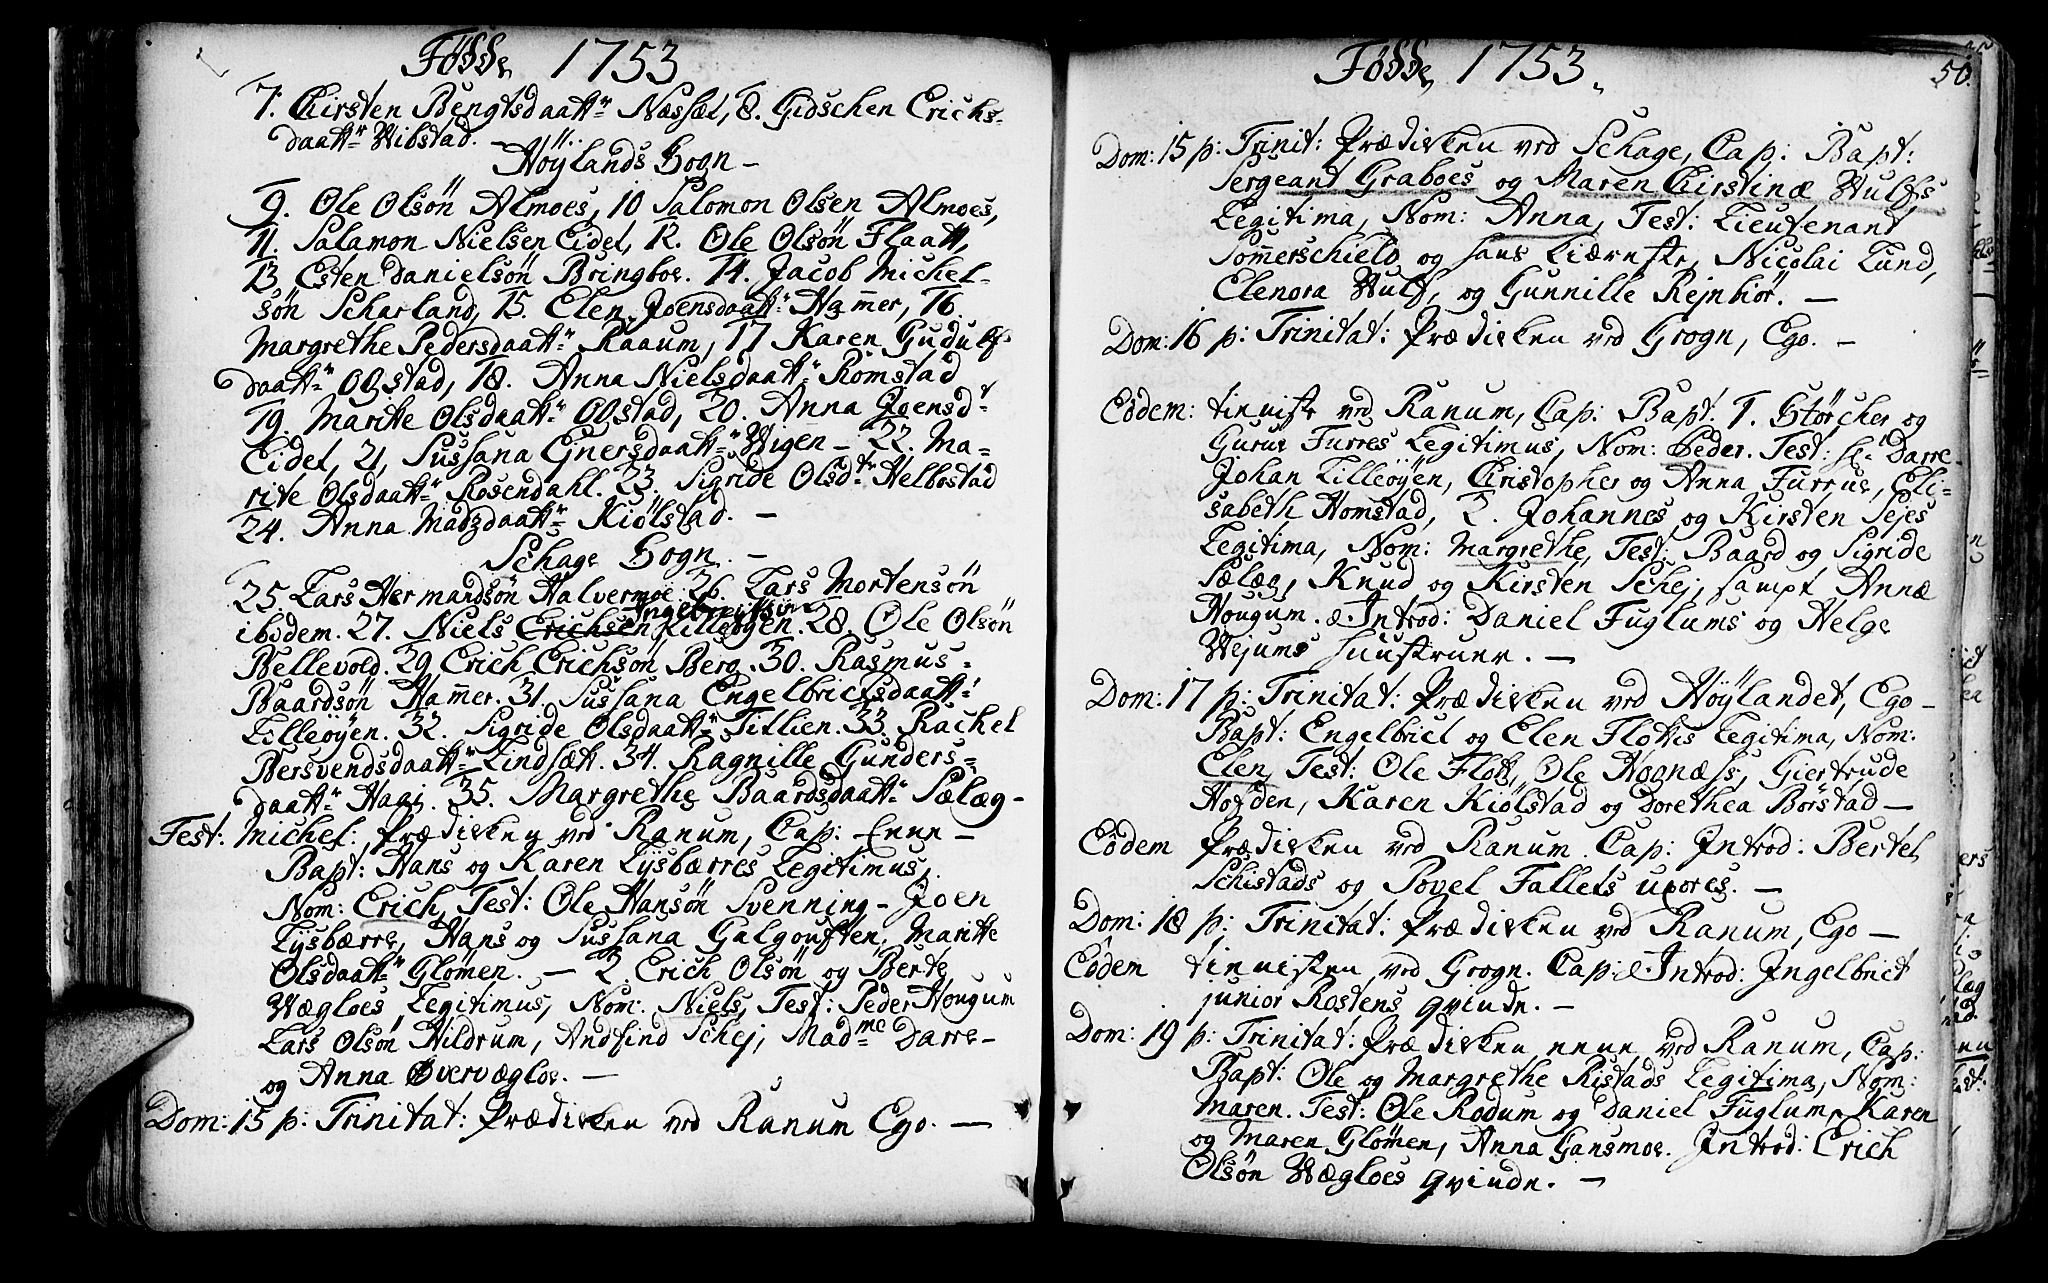 Födde 1753
7. Kirsten Bengtsdaattr Næsset, 8. Gidschen Erichs-
daattr Wibstad. -
Höylands Sogn -
9. Ole Olsön Almoes, 10 Salomon Olsen Almoes,
11. Salamon Nielsen Eidet, 12. Ole Olsön Flaatt,
13 Esten Danielsön Bringboe. 14. Jacob Michel-
sön Scharland, 15. Elen Joensdaattr Hammer, 16.
Margrethe Pedersdaattr Raaum, 17 Karen Gudulfs
daattr Ogstad, 18. Anna Nielsdaattr Römstad
19. Maritte Olsdaattr Ogstad, 20. Anna Joensdtr
Eidet, 21, Sussana Enersdaattr Wigen - 22. Ma-
rite Olsdaattr Rosendahl. 23. Sigride Olsdtr Helbostad
24. Anna Madzdaattr Kiölstad. -
Schage Sogn. -
25 Lars Hermandsön Halvermoe 26. Lars Mortensön
Ingebrichtsön
ibidem. 27. Niels Erichsen Lilleöyen. 28. Ole Olsön
Bellevold. 29 Erich Erichsön Berg. 30. Rasmus
Baardsön Hammer. 31. Sussana Engelbrictsdaattr
Lilleöyen. 32. Sigride Olsdaattr Titlien. 33. Rachel
Bersvendsdaattr Lindsætt. 34. Ragnille Gunders-
daattr Haaj. 35. Margrethe Baardsdaattr Sælæg -
Fest: Michel: Prædicken ved Ranum, Cap: -
Bapt: Hans og Karen Lysbærres Legitimus,
Nom: Erich, Test: Ole Hansön Svenning - Joen
Lysbærre, Hans og Sussana Galgouften, Maritte
Olsdaattr Glömen. - 2. Erich Olsön og Berte
Wægloes Legitimus, Nom: Niels, Test: Peder Hougum
Lars Olsön Hildrum, Andfind Schej, Madme Darre -
og Anna Øvervægloe. -
Dom: 15 p: Trinitat: Prædicken ved Ranum Ego. -
Födde 1753.
50.
Dom: 15 p: Trinit: Prædicken ved Schage, Cap: Bapt:
Sergeant Graboes og Maren Kirstinæ Wulfs
Legitima, Nom: Anna, Test: Lieutenant
Sommerschield og hans Kiæreste, Nicolai Lund,
Elenora Wulf, og Gunnille Rejnbiör. -
Dom: 16 p: Trinitat: Prædicken ved Grogn, Ego. -
Eôdem: ved Ranum, Cap: Bapt: 1. Störcher og
Gurue Furres Legitimus, Nom: Peder. Test: Hr: Darre
Johan Lilleöyen, Christopher og Anna Furrue, Eli-
sabeth Homstad, 2. Johannes og Kirsten Sejes
Legitima, Nom: Margrethe, Test: Baard og Sigride
Sælæg, Knud og Kirsten Schej, sampt Annæ
Hougum. & Introd: Daniel Fuglums og Helge
Wejums Huustruer. -
Dom: 17 p: Trinitat: Prædicken ved Höylandet, Ego -
Bapt: Engelbrict og Elen Flottes Legitima, Nom:
Elen, Test: Ole Flott, Ole Hognæss, Giertrude
Hofden, Karen Kiölstad og Dorethea Börstad -
Eôdem Prædicken ved Ranum. Cap: Introd: Bertel
Schistads og Povel Fallets uxores. -
Dom: 18 p: Trinitat: Prædicken ved Ranum, Ego -
Eôdem ved Grogn. Cap: & Introd: Ingelbrict
junior Rostens qvinde. -
Dom: 19 p: Trinitat: Prædicken ved Ranum, Cap:
Bapt: Ole og Margrethe Ristads Legitima, Nom:
Maren. Test: Ole Rodum og Daniel Fuglum, Karen
og Maren Glömen, Anna Gansmoe. Introd: Erich
Olsön Wægloes qvinde. -